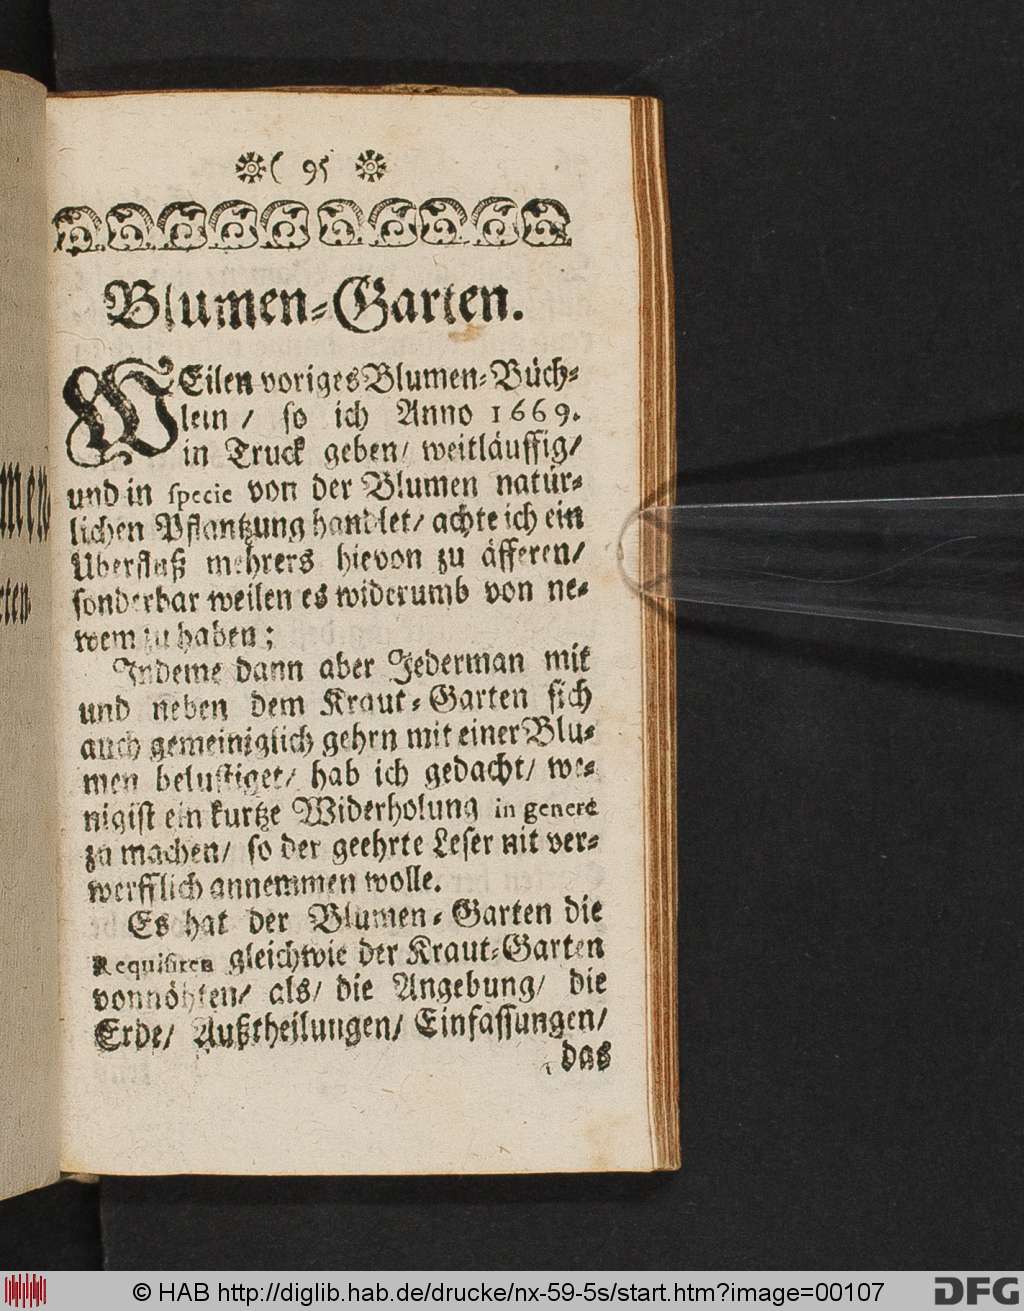 ( 95
Blumen-Garten.
WEilen voriges Blumen-Büch-
lein / so ich Anno 1669.
in Truck geben / weitläuffig /
und in specie von der Blumen natür-
lichen Pflantzung handlet / achte ich ein
Uberfluß mehrers hievon zu äfferen /
sonderbar weilen es widerumb von ne-
wem zu haben ;
Indeme dann aber Jederman mit
und neben dem Kraut-Garten sich
auch gemeiniglich gehrn mit einer Blu-
men belustiget / hab ich gedacht / we-
nigist ein kurtze Widerholung in genere
zu machen / so der geehrte Leser nit ver-
werfflich annemmen wolle.
Es hat der Blumen-Garten die
Requisiten gleichwie der Kraut-Garten
vonnöhten / als / die Angebung / die
Erde / Außtheilungen / Einfassungen /
das
© HAB http://diglib.hab.de/drucke/nx-59-5s/start.htm?image=00107
DFG